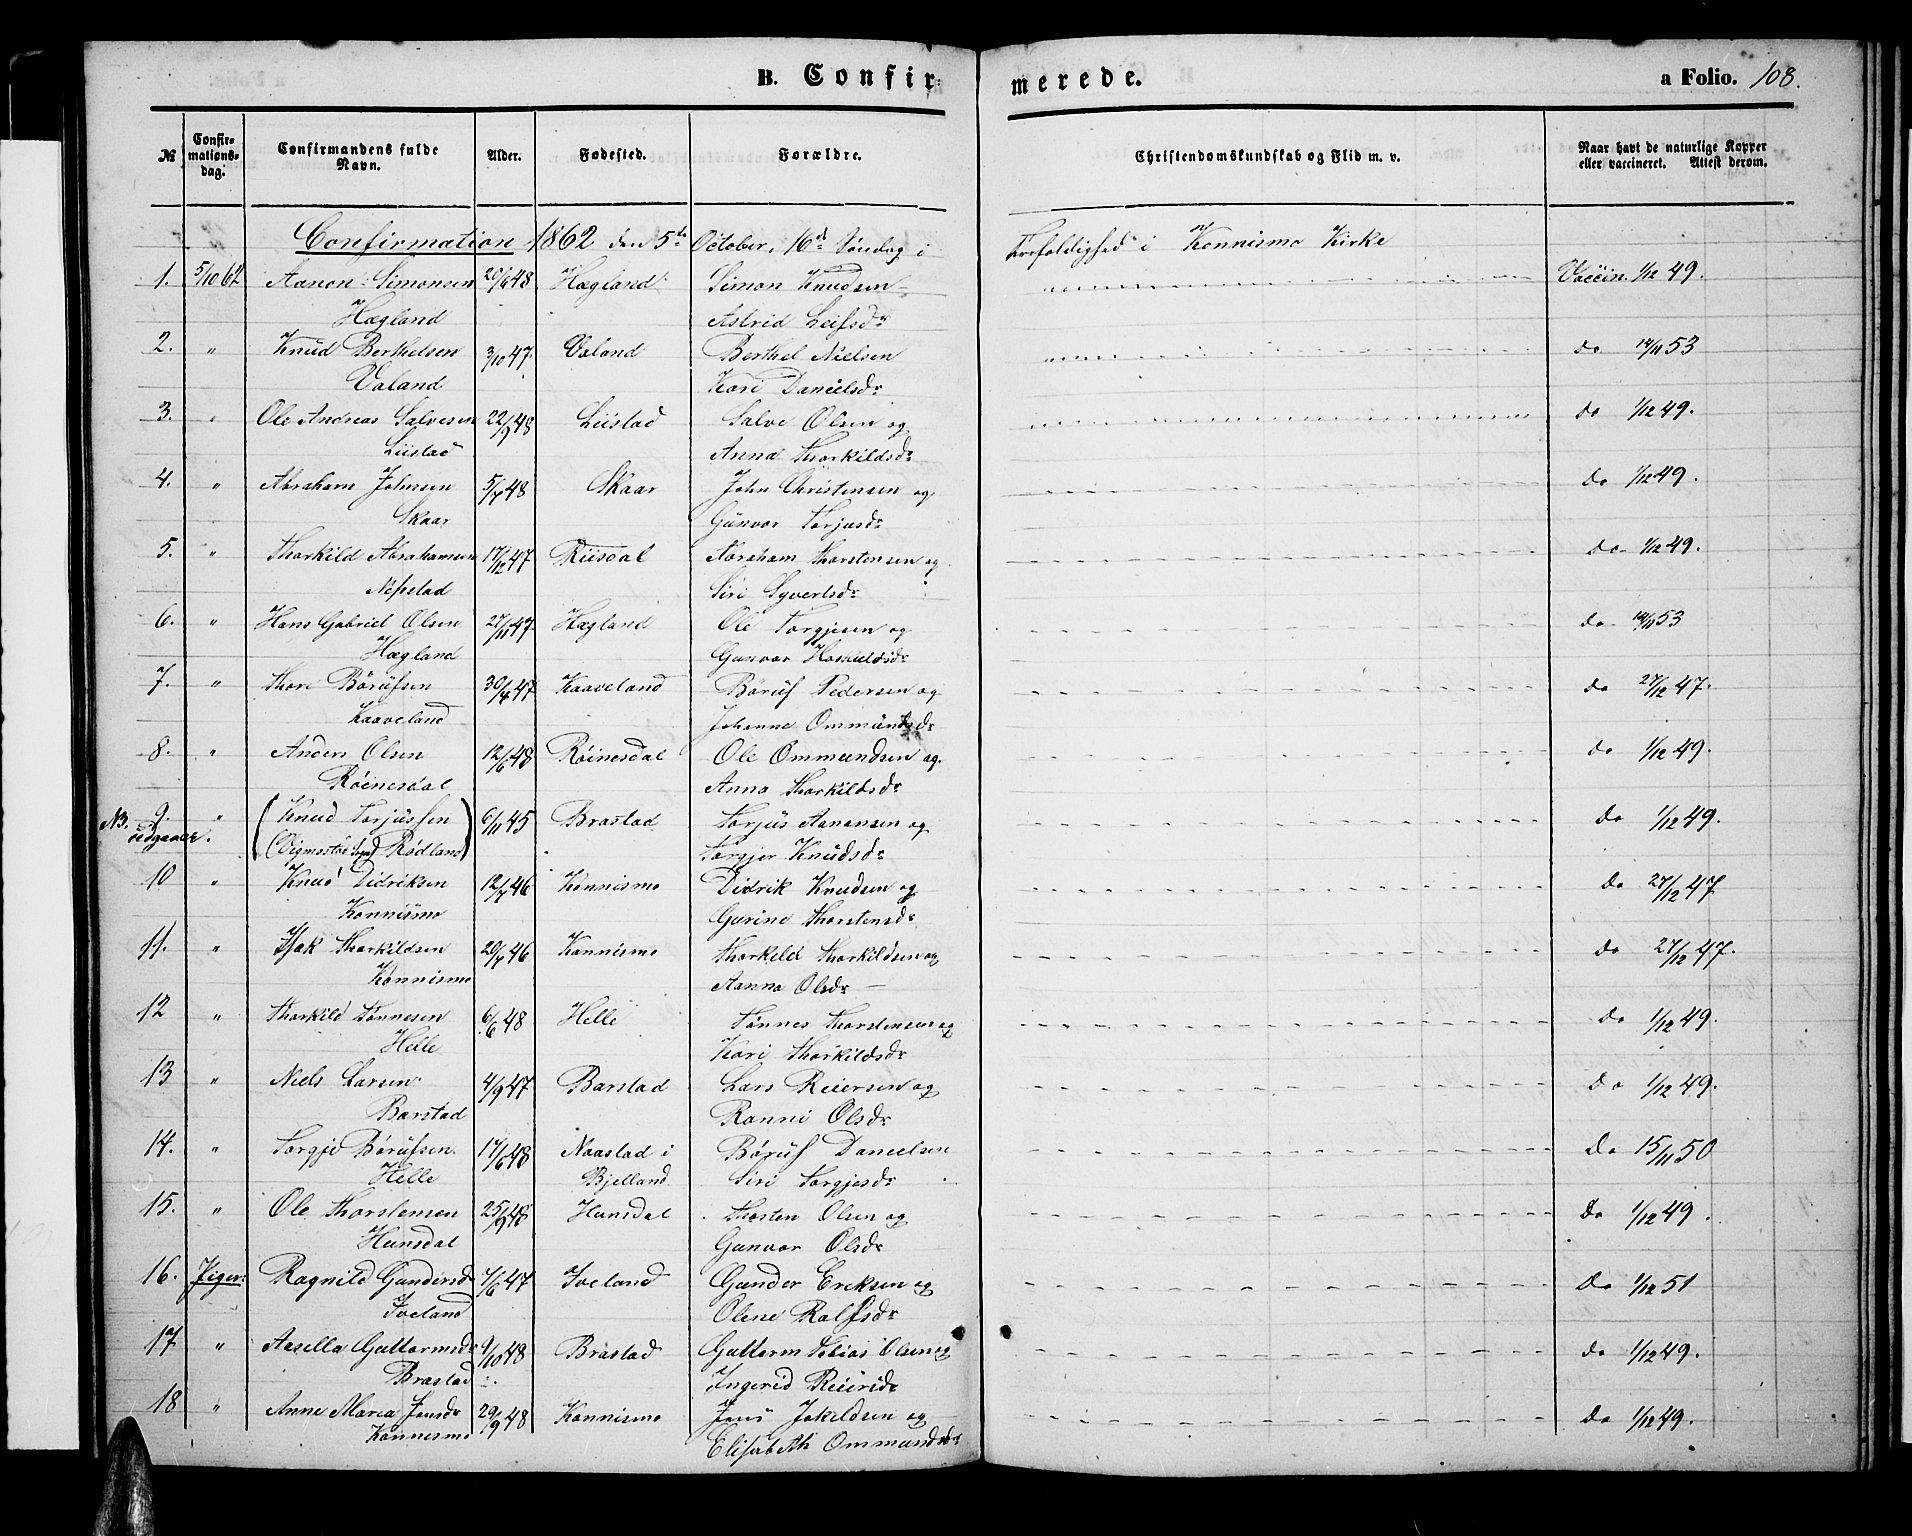 B. Confirmerede. a Folio. 108.
№ Confirmationsdag. Confirmandens fulde Navn. Alder. Fødested. Forældre. Christendomskundskab og Flid m. v. Naar havt de naturlige Kopper eller vaccineret. Attest derom.
Confirmation 1862 den 5te October, 16de Søndag i Trefoldighed i Konnismo Kirke
1. 5/10 62 Aanon Simonsen 20/6 48 Hægland Simon Knudsen Vaccin. 1/12 49.
Hægland Astrid Leifsdr
2. " Knud Berthelsen 3/10 47. Valand Berthel Nielsen do 14/11 53
Valand Kari Danielsdr
3. " Ole Andreas Salvesen 22/9 48 Liistad Salve Olsen og do 1/12 49.
Liistad Anna Thorkildsdr
4. " Abraham Johnsen 5/7 48 Skaar John Christensen og do 1/12 49.
Skaar Gunvor Torjusdr
5. " Thorkild Abrahamsen 17/12 47 Riisdal Abraham Thorstensen og do 1/12 49.
Nepstad Siri Syvertsdr
6. " Hans Gabriel Olsen 27/11 47. Hægland Ole Torgjesen og do 14/11 53
Hægland Gunvor
7. " Thore Børufsen 30/4 47 Kaaveland Børuf Pedersen og do 27/12 47.
Kaaveland Johanne Ommundsdr
8. " Anders Olsen 12/6 48 Røinesdal Ole Ommundsen og do 1/12 49.
Røinesdal Anna Thorkildsdr
NB. 9. " (Knud Torjussen 6/11 45 Brastad Torjus Aanonsen og do 1/12 49.
udgaaer. (Vigmostad Sogn) Rødland) Torgjer Knudsdr
10 " Knud Didriksen 12/7 46 Konnismo Didrik Knudsen og do 27/12 47
Konnismo Gurine Thorstensdr
11. " Isak Thorkildsen 20/7 46 Konnismo Thorkild Thorkildsen og do 27/12 47.
Konnismo Aanna Olsdr
12 " Thorkild Tønnesen 6/6 48 Helle Tønnes Thorstensen og do 1/12 49.
Helle Kari Thorkildsdr
13 " Niels Larsen 4/9 47 Barstad Lars Reiersen og do 1/12 49.
Barstad Ranni Olsdr
14. " Torgje Børufsen 17/6 48 Naastad i Børuf Danielsen Do 15/11 50
Helle Bjelland Siri Torgjesdr
15. " Ole Thorstensen 25/9 48 Hunsdal Thosten Olsen og Do 1/12 49.
Hunsdal Gunvor Olsdr
16. Piger: Ragnild Gundersdr 7/6 47 Iveland Gunder Eriksen og Do 1/12 51
Iveland Olene Ralfsdr
17 " Aasilla Guttormsdr 9/10 48 Brastad Guttorm Tobias Olsen og do 1/12 49.
Brastad Ingerid
18 " Anne Maria Jensdr 29/9 48 Konnismo Jens Jakildsen og do 1/12 49.
Konnesmo Elisabeth Ommundsdr